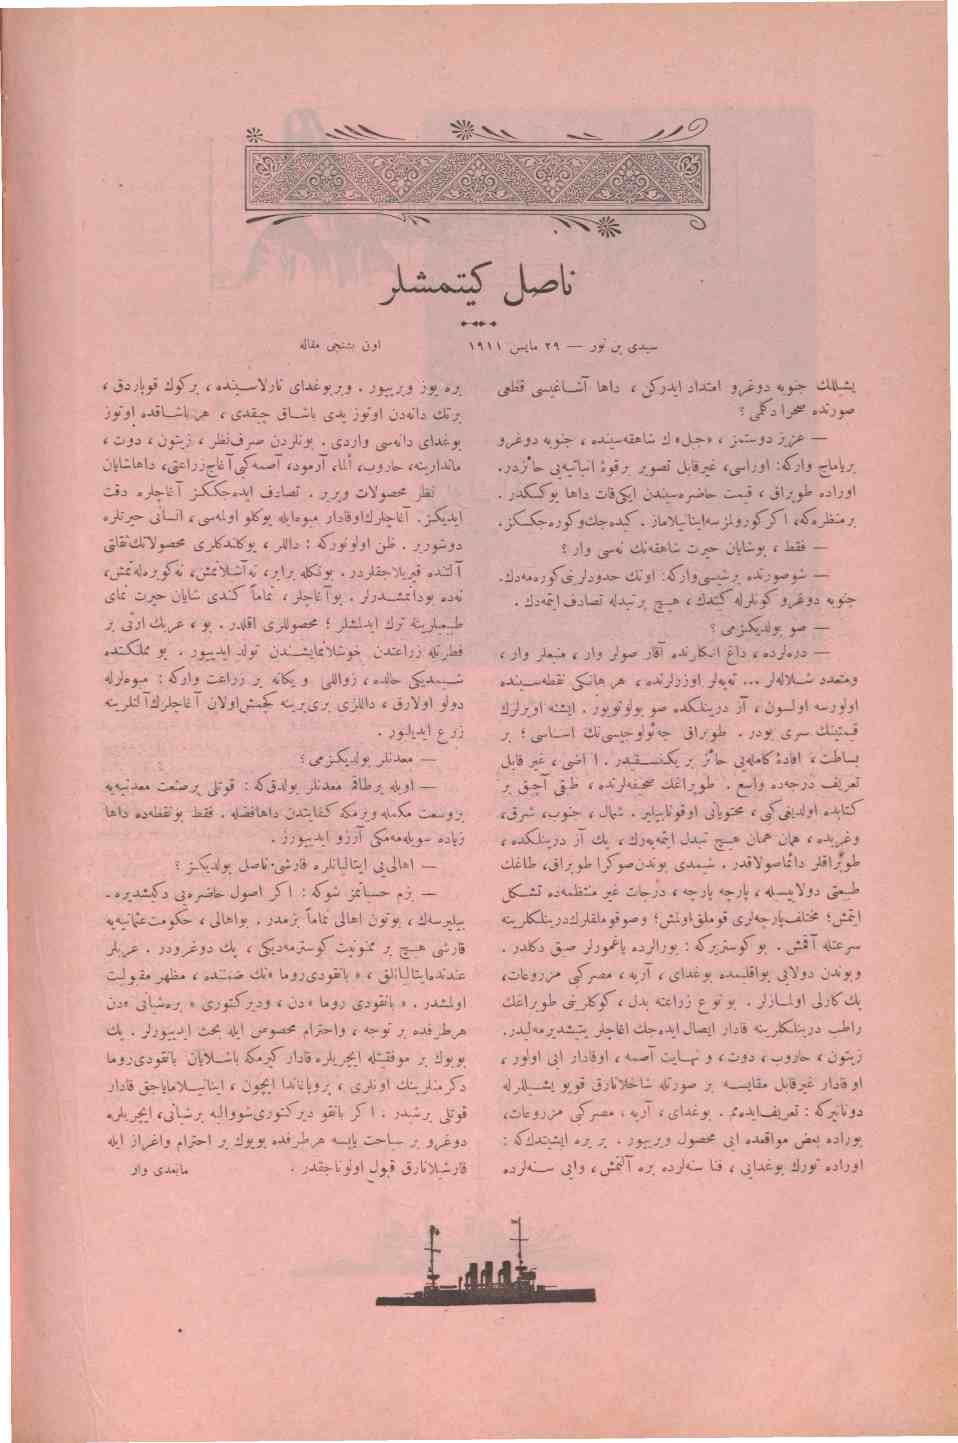 ناصل كيتمشلر
سيدى بن نور — ٢٩ مايس ١٩١١
اون بشنجى مقاله
يشيللك جنوبه دوغرو امتداد ايدركن ، داها آشاغيسى قطعى
صورتده صحرا دكلمى ؟
— عزيز دوستمز ، «جبل» ك شاهقه‌سينده ، جنوبه دوغرو
برياماج واركه: اوراسى، غيرقابل تصوير برقوۀ انباتيه‌يى حائزدر.
اوراده طوبراق ، قيمت حاضره‌سيندن ايكى قات داها يوكسكدر .
برمنظره‌كه، اكر كورولمزسه اينانيلاماز . كيده‌جك وكوره‌جكسكز .
— فقط ، بوشايان حيرت شاهقه‌نك نه‌سى وار ؟
— شوصورتده برشيسى واركه: اونك حدودلرينى كوره‌مه‌دك.
جنوبه دوغرو كونلرله كيتدك ، هيچ برتبدله تصادف ايتمه‌دك .
— صو بولديكزمى ؟
— دره‌لرده ، داغ اتكلرنده آقار صولر وار ، منبعلر وار ،
ومتعدد شلاله‌لر ... تپه‌لر اوزرلرنده ، هر هانكى نقطه‌سينده
اولورسه اولسون ، آز درينلكده صو بولونويور . ايشته اويرلرك
قيمتينك سرى بودر . طوبراق جه‌ئولوجيسى‌نك اساسى ؛ بر
بساطت ، افادۀ كامله‌يى حائز بر يكنسقيدر . اراضى ، غير قابل
تعريف درجه‌ده واسع . طوبراغك صحيفه‌لرنده ، طبقى آچيق بر
كتابده اولديغى كبى ، محتوياتى اوقونابيلير . شمال ، جنوب، شرق،
وغربده ، همان همان هيچ تبدل ايتمه‌يه‌رك ، پك آز درينلكده ،
طوپراقلر دائما صولاقدر . شيمدى بوندن صوكرا طوبراق، طاغك
طبيعتى دولاييسيله ، پارچه پارچه ، درجات غير منتظمه‌ده تشكل
ايتمش؛ مختلف پارچه‌لرى قوملق اولمش؛ وصوقوملقلرك درينلكلرينه
سرعتله آقمش . بو كوستريركه : بورالرده ياغمورلر صيق دكلدر .
وبوندن دولايى بواقليمده بوغداى ، آرپه ، مصر كبى مزروعات،
پك كارلى اولمازلر . بو نوع زراعته بدل ، كوكلرينى طوبراغك
راطب درينلكلرينه قادار ايصال ايده‌جك اغاجلر يتيشديرمه‌ليدر.
زيتون ، خاروب ، دوت ، و نهايت آصمه ، اوقادار ايى اولور ،
او قادار غيرقابل مقايسه بر صورتله شاخلانارق قويو يشيللرله
دونانيركه : تعريف ايده‌مم . بوغداى ، آرپه ، مصر كبى مزروعات،
بوراده بعض مواقعده ايى محصول ويرييور . بر يره ايشيتدك كه :
اوراده تورك بوغدايى ، فنا سنه‌لرده بره آلتمش ، وايى سنه‌لرده
بره يوز ويرييور . وبربوغداى تارلاسينده ، بركوك قوپاردق ،
برتك دانه‌دن اوتوز يدى باشاق چيقدى ، هر باشاقده اوتوز
بوغداى دانه‌سى واردى . بونلردن صرف نظر ، زيتون ، دوت ،
ماندارينه، خاروب، ألما، آرمود، آصمه كبى آغاج زراعتى، داها شايان
نظر محصولات ويرير . تصادف ايده‌جككز آغاجلره دقت
ايديكز. آغاجلرك اوقادار ميوه ايله يوكلو اولمه‌سى ، انسانى حيرتلره
دوشورير . ظن اولونوركه : داللر ، يوكلندكلرى محصولاتك ثقلتى
آلتنده قيريلاجقلردر . بونكله برابر، نه آشيلانمش، نه كوبره‌له‌نمش،
نه‌ده بودانمشدرلر . بوآغاجلر ، تماماً كندى شايان حيرت نماى
طبيعيلرينه ترك ايدلمشلر ؛ محصوللرى اقلدر . بو ، عربك ارثى بر
فطرتله زراعتدن خوشلانمايشندن تولد ايدييور . بو مملكتده
شيمديكى حالده ، زواللى و يكانه بر زراعت واركه : ميوه‌لرله
دولو اولارق ، داللرى برى برينه كچمش اولان آغاجلرك آلتلرينه
زرع ايديلور .
— معدنلر بولديكزمى ؟
— اويله برطاقم معدنلر بولدق كه : قوتلى برصنعت معدنيه‌يه
بر وسعت مكمله ويرمكه كفايتدن داها فضله . فقط بو نقطه‌ده داها
زياده سويله‌مه‌مكى آرزو ايدييورز .
— اهالى‌يى ايتاليانلره قارشى ناصل بولديكز ؟
— بزم حسياتمز شوكه : اكر اصول حاضره‌يى دكيشديره-
بيليرسه‌ك ، بوتون اهالى تماماً بزمدر . بواهالى ، حكومت عثمانيه‌يه
قارشى هيچ بر ممنونيت كوسترمه‌ديكى ، پك دوغرودر . عربلر
عندنده ايتاليانلق ، « بانقودى روما » نك ضمننده ، مظهر مقبوليت
اولمشدر . « بانقودى روما » دن ، وديركتورى « بره‌شيانى » دن
هرطرفده بر توجه ، واحترام مخصوص ايله بحث ايدييورلر . پك
بويوك بر موفقيتله ايچريلره قادار كيرمكه باشلايان بانقودى روما
دكرمنلرينك اونلرى ، پروپاغاندا ايچون ، اينانيلامايا جق قادار
قوتلى برشيدر . اكر بانقو ديركتورى شوواليه برشيانى، ايچريلره
دوغرو بر سياحت ياپسه هرطرفده بويوك بر احترام واعزاز ايله
قارشيلانارق قبول اولوناجقدر .
مابعدى وار